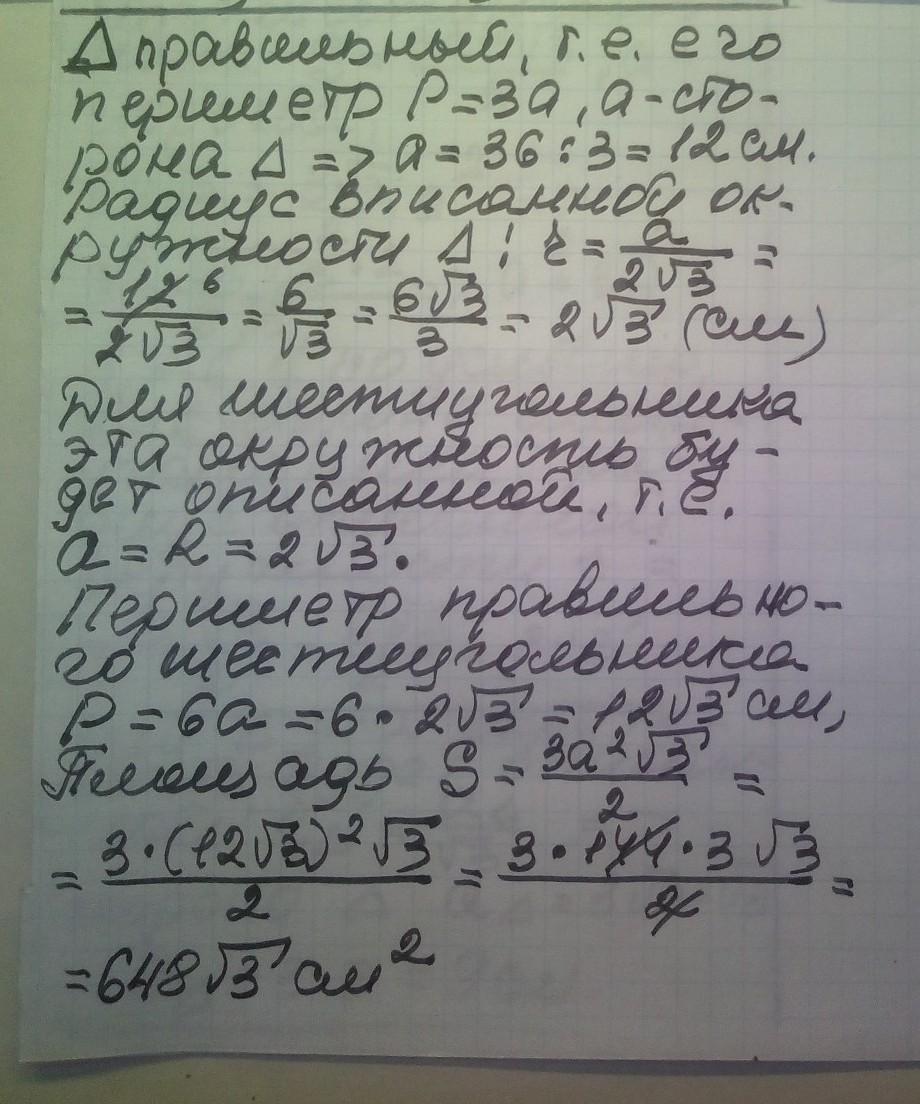 Δ правильный, т.е. его
периметр P=3a, a-сто-
рона Δ => a = 36:3=12 см.
Радиус вписанной ок-
ружности Δ: r = a/(2√3) =
= 12 6/(2√3) = 6/√3 = 6√3/3 = 2√3 (см)
Для шестиугольника
эта окружность бу-
дет описанной, т.е.
a = R = 2√3.
Периметр правильно-
го шестиугольника
P = 6a = 6 · 2√3 = 12√3 см,
Площадь S = 3a²√3/2 =
= 3·(12√3)²√3/2 = 3·144·3√3/2 =
= 648√3 см²